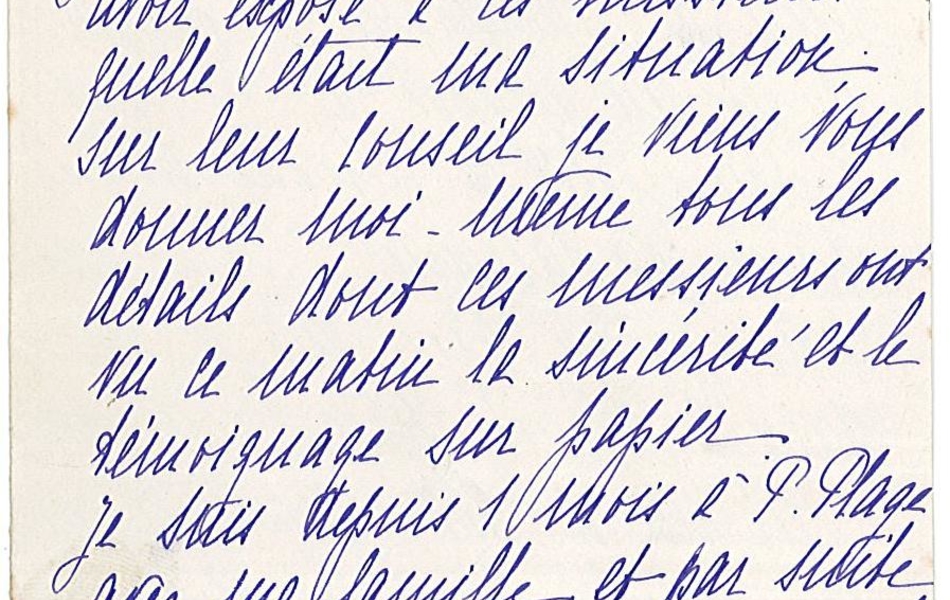 avoir exposé à ces messieurs
quelle était ma situation.
Sur leur conseil je viens vous
donner moi-même tous les
détails dont ces messieurs ont
vu ce matin la sincérité et le
témoignage sur papier.
Je suis depuis 1 mois à P. Plage
avec ma famille et par suite